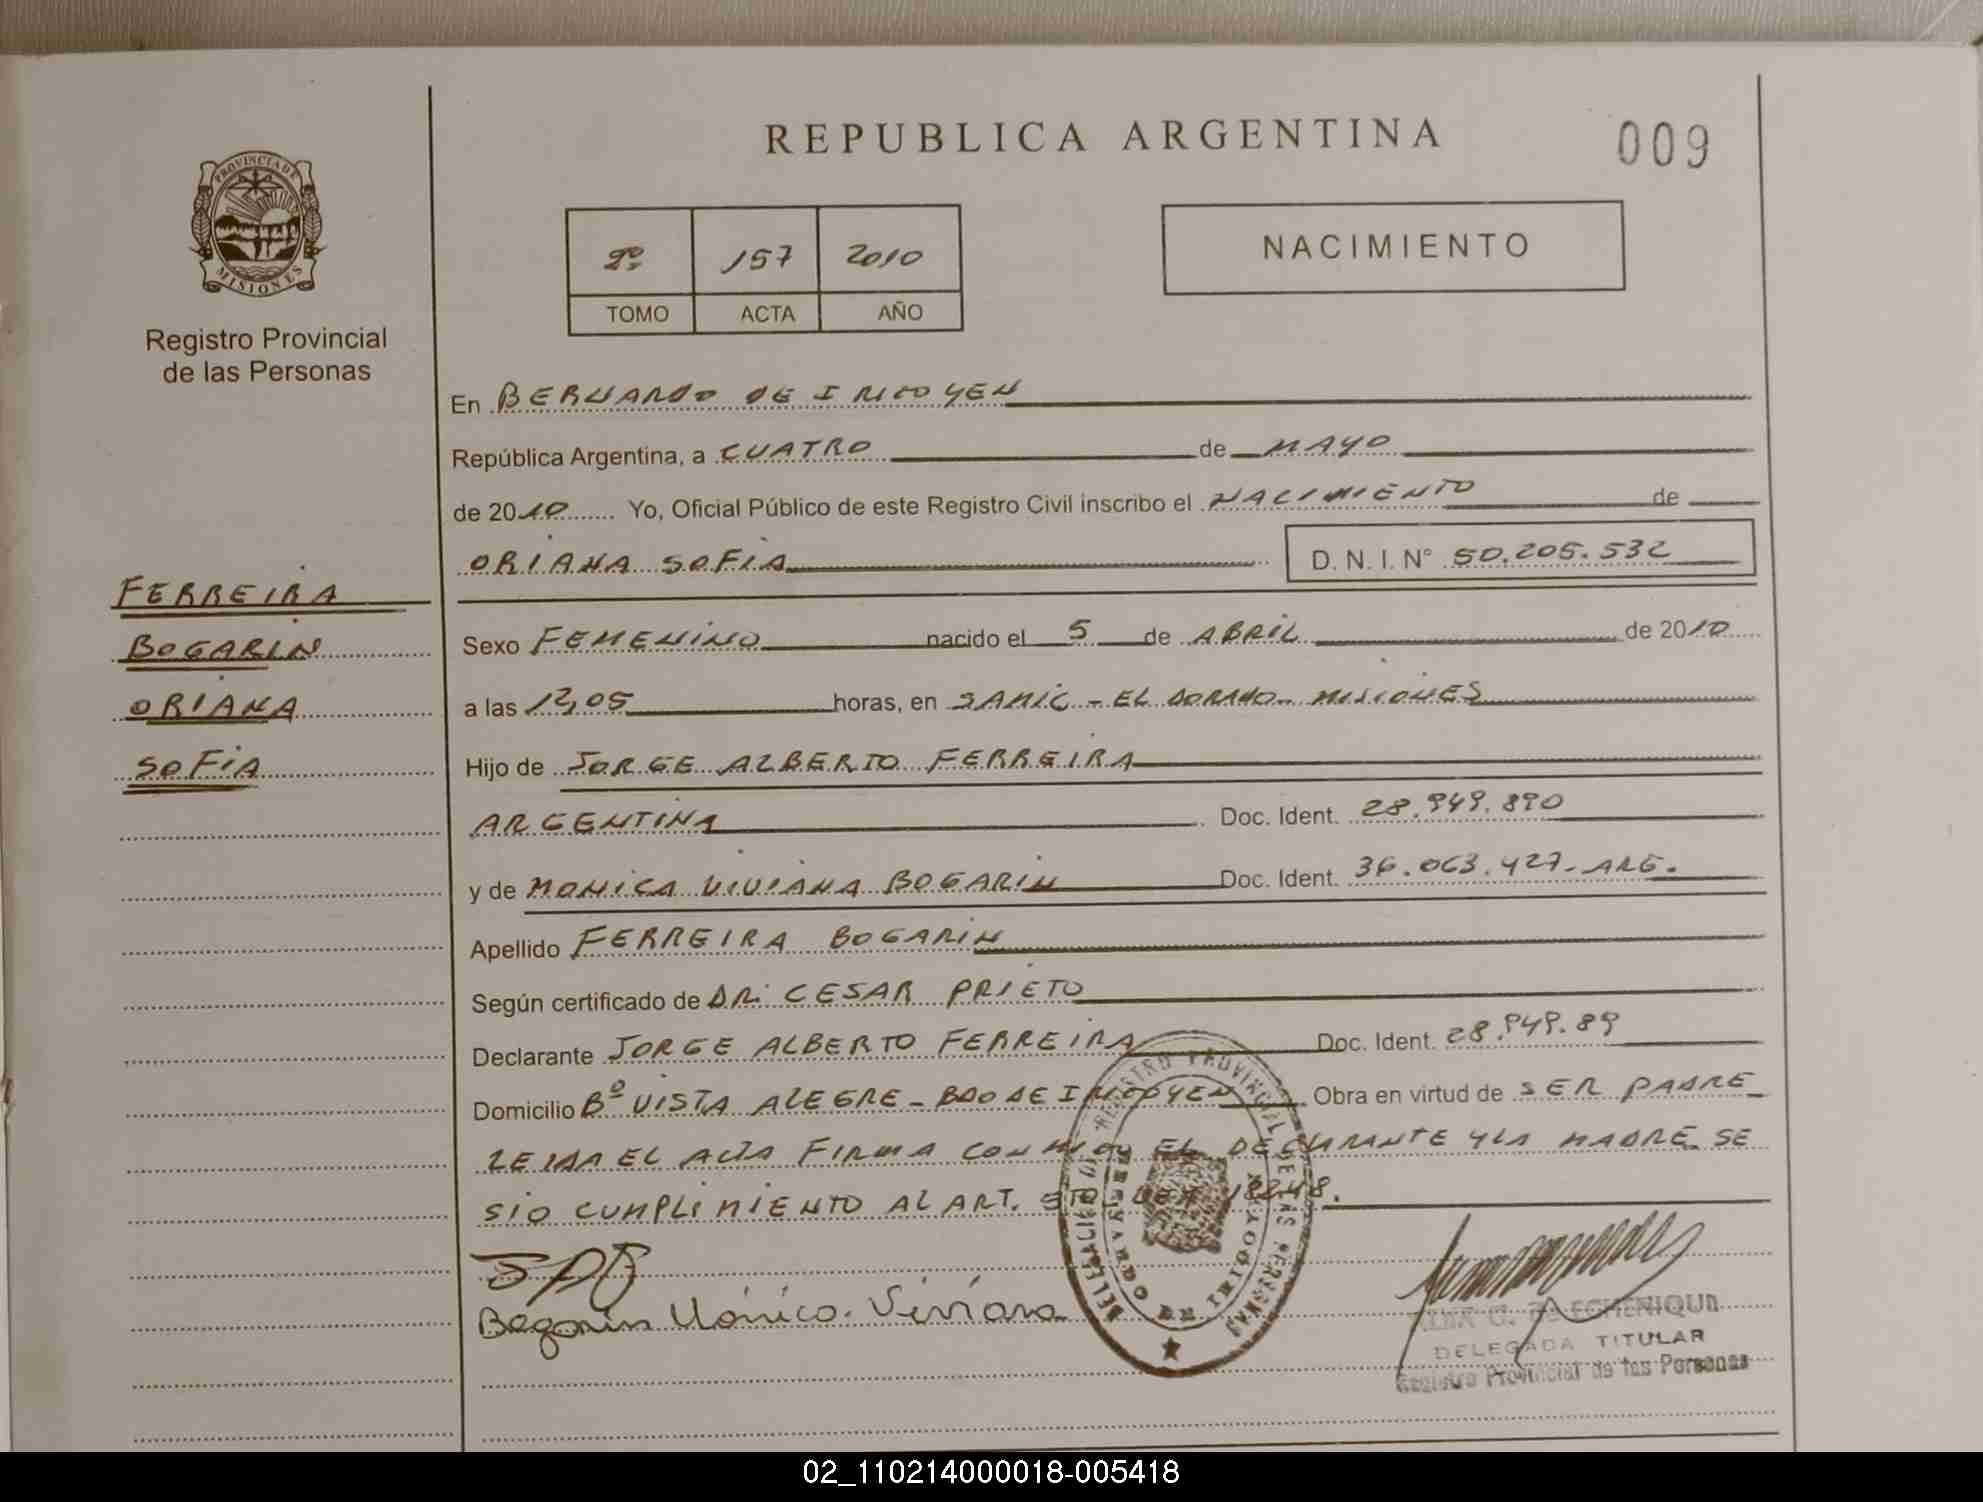 REPUBLICA ARGENTINA
009
PROVINCIA DE
MISIONES
Registro Provincial
de las Personas
2º 157 2010
TOMO ACTA AÑO
NACIMIENTO
En BERNARDO DE IRIGOYEN
República Argentina, a CUATRO de MAYO
de 2010 Yo, Oficial Público de este Registro Civil inscribo el NACIMIENTO de
ORIANA SOFIA D. N. I. N° 50.205.532
FERREIRA
BOGARIN
ORIANA
SOFIA
Sexo FEMENINO nacido el 5 de ABRIL de 2010
a las 12,05 horas, en SAMIC - EL DORADO - MISIONES
Hijo de JORGE ALBERTO FERREIRA
ARGENTINA Doc. Ident. 28.949.890
y de MONICA VIVIANA BOGARIN Doc. Ident. 36.063.427. ARG.
Apellido FERREIRA BOGARIN
Según certificado de DR. CESAR PRIETO
Declarante JORGE ALBERTO FERREIRA Doc. Ident. 28.949.89
Domicilio Bº VISTA ALEGRE - BDO DE IRIGOYEN Obra en virtud de SER PADRE
LEIDA EL ACTA FIRMA CONMIGO EL DECLARANTE Y LA MADRE. SE
DIO CUMPLIMIENTO AL ART. 5TO LEY 18248.
Bogarin Mónica Viviana
DELEGACION REGISTRO PROVINCIAL DE LAS PERSONAS
BERNARDO DE IRIGOYEN
DELEGADA TITULAR
Registro Provincial de las Personas
02_110214000018-005418